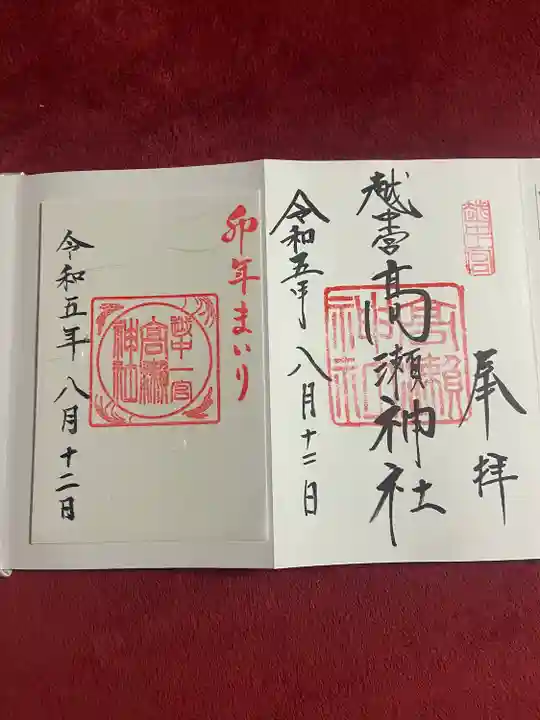 奉拝
越中一宮
越中一宮髙瀬神社
高瀬
神社
令和五年八月十二日
卯年まいり
高瀬
神社
令和五年八月十二日